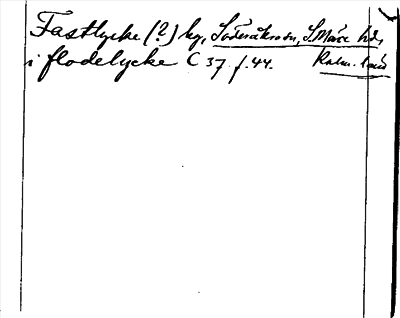 Fastlycke (?) hg, Söderåkra sn, S. Möre hd,
i flodelycke C 37 f. 44. Kalm. län